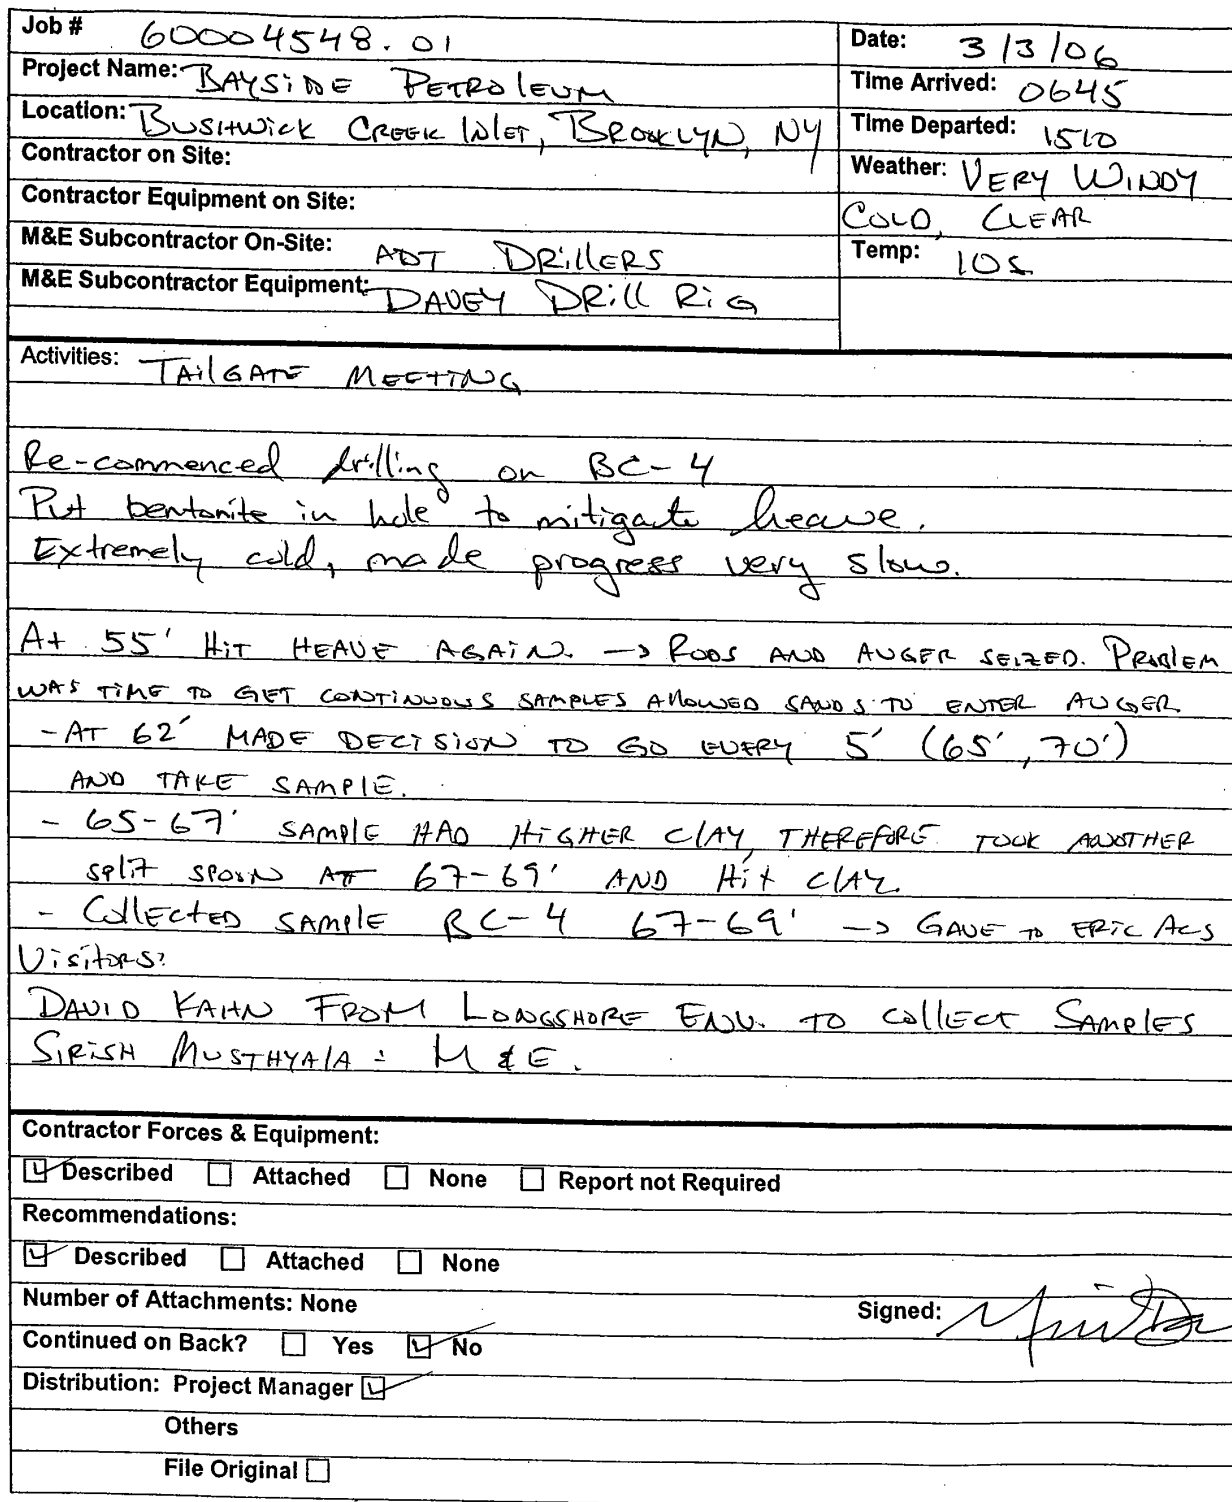 Job # 60004548.01
Date: 3/3/06
Project Name: BAYSIDE PETROLEUM
Time Arrived: 0645
Location: BUSHWICK CREEK INLET, BROOKLYN, NY
Time Departed: 1510
Contractor on Site:
Weather: VERY WINDY
Contractor Equipment on Site:
COLD, CLEAR
M&E Subcontractor On-Site: ADT DRILLERS
Temp: 10s
M&E Subcontractor Equipment: DAVEY DRILL RIG
Activities: TAILGATE MEETING
Re-commenced drilling on BC-4
Put bentonite in hole to mitigate heave.
Extremely cold, made progress very slow.
At 55' HIT HEAVE AGAIN. -> RODS AND AUGER SEIZED. PROBLEM
WAS TIME TO GET CONTINUOUS SAMPLES ALLOWED SANDS TO ENTER AUGER.
- AT 62' MADE DECISION TO GO EVERY 5' (65', 70')
AND TAKE SAMPLE.
- 65-67' SAMPLE HAD HIGHER CLAY, THEREFORE TOOK ANOTHER
SPLIT SPOON AT 67-69' AND HIT CLAY.
- COLLECTED SAMPLE BC-4 67-69' -> GAVE TO ERIC ACS
VISITORS:
DAVID KAHN FROM LONGSHORE ENV. TO COLLECT SAMPLES
SIRISH MUSTHYALA = M & E.
Contractor Forces & Equipment:
☑ Described ☐ Attached ☐ None ☐ Report not Required
Recommendations:
☑ Described ☐ Attached ☐ None
Number of Attachments: None
Signed:
Continued on Back? ☐ Yes ☑ No
Distribution: Project Manager ☑
Others
File Original ☐